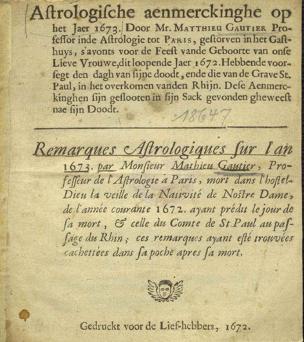 Astrologische aenmerckinghe op
het Jaer 1673. Door Mr. MATTHIEU GAUTIER Pro-
fessor inde Astrologie tot PARIS, gestorven in het Gast-
huys, s'avonts voor de Feest vande Geboorte van onse
Lieve Vrouwe, dit loopende Jaer 1672. Hebbende voor-
segt den dagh van sijne doodt, ende die van de Grave St.
Paul, in het overkomen vanden Rhijn. Dese Aenmerc-
kinghen sijn geslooten in sijn Sack gevonden gheweest
nae sijn Doodt.
18647
Remarques Astrologiques sur l'an
1673. par Monsieur Mathieu Gautier, Pro-
fesseur de l'Astrologie à Paris, mort dans l'hostel-
Dieu la veille de la Nativité de Nostre Dame,
de l'année courante 1672. ayant prédit le jour de
sa mort, & celle du Comte de St. Paul au pas-
sage du Rhin; ces remarques ayant esté trouvées
cachettées dans sa poche apres sa mort.
Gedruckt voor de Lief-hebbers, 1672.